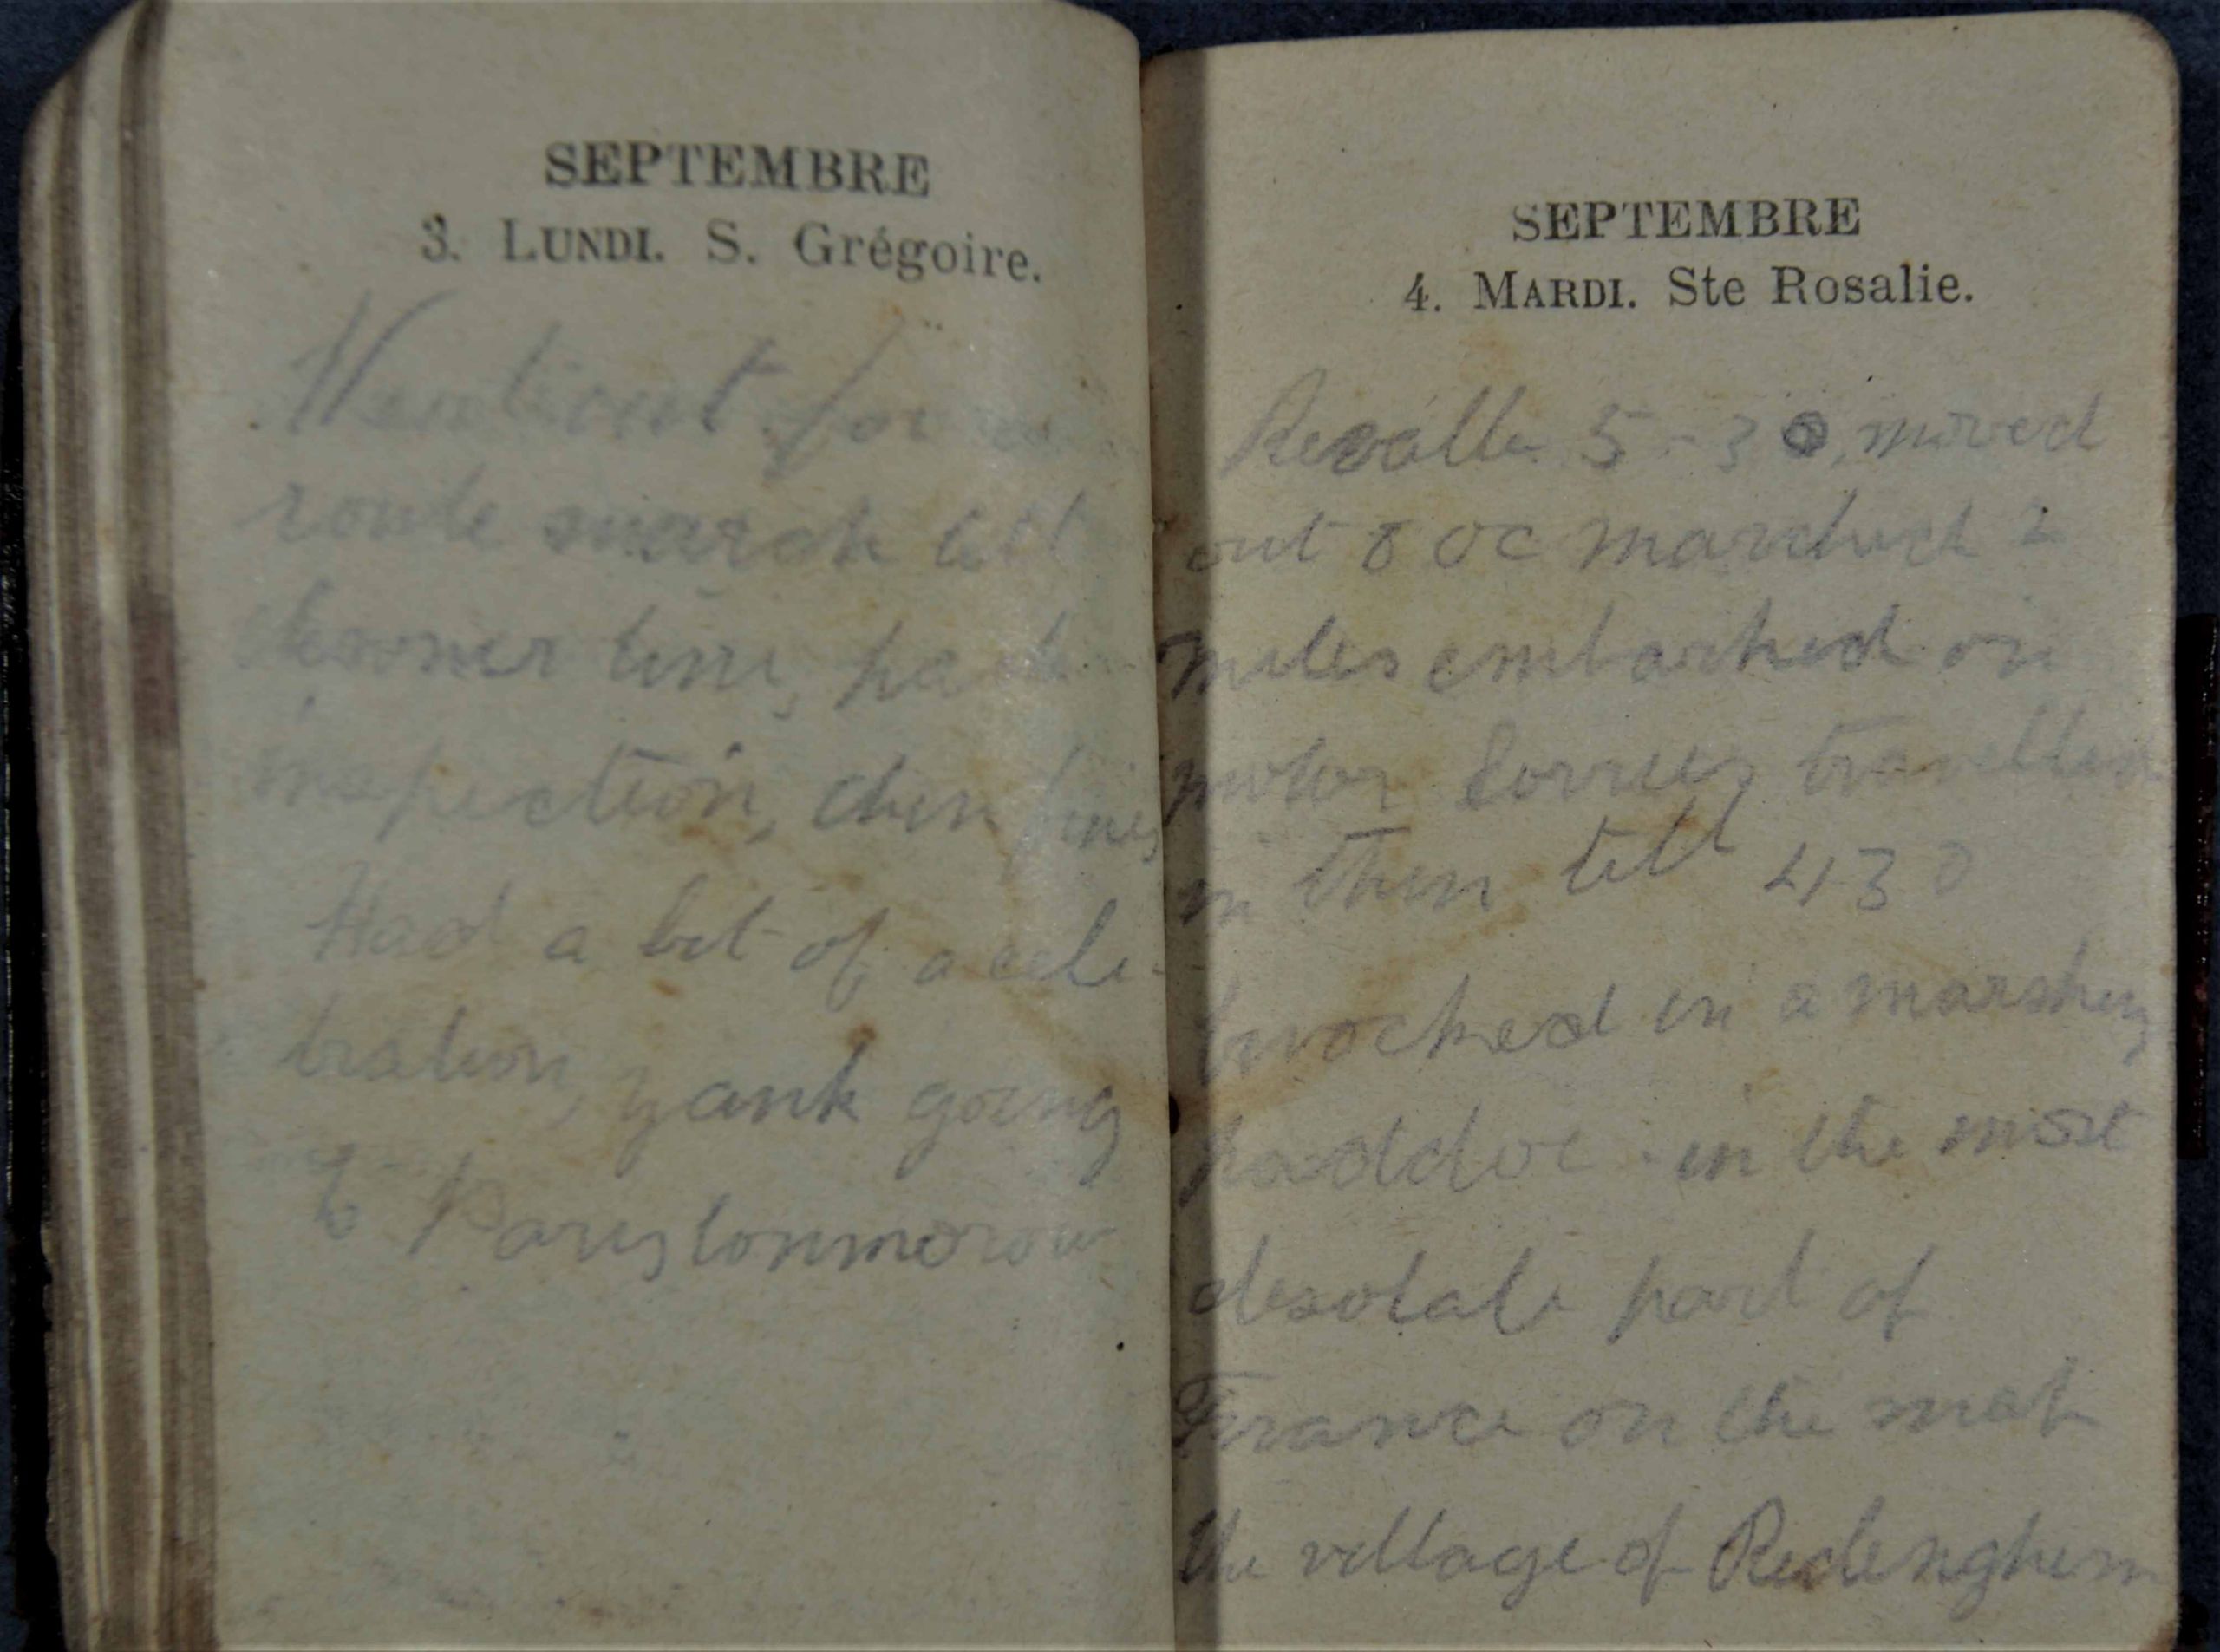 SEPTEMBRE
3. LUNDI. S. Grégoire.
Went out for a
route march till
dinner time, pack
inspection, then finis
Had a bit of a cele-
bration, yank going
to Paris tonmorow
SEPTEMBRE
4. MARDI. Ste Rosalie.
Revalle 5-30, moved
out 8 oc marched 2
miles embarked on
motor lorries travelled
in them till 430
bivocked in a marshey
paddoc in the most
desolate part of
France on the map
the village of Redenghem